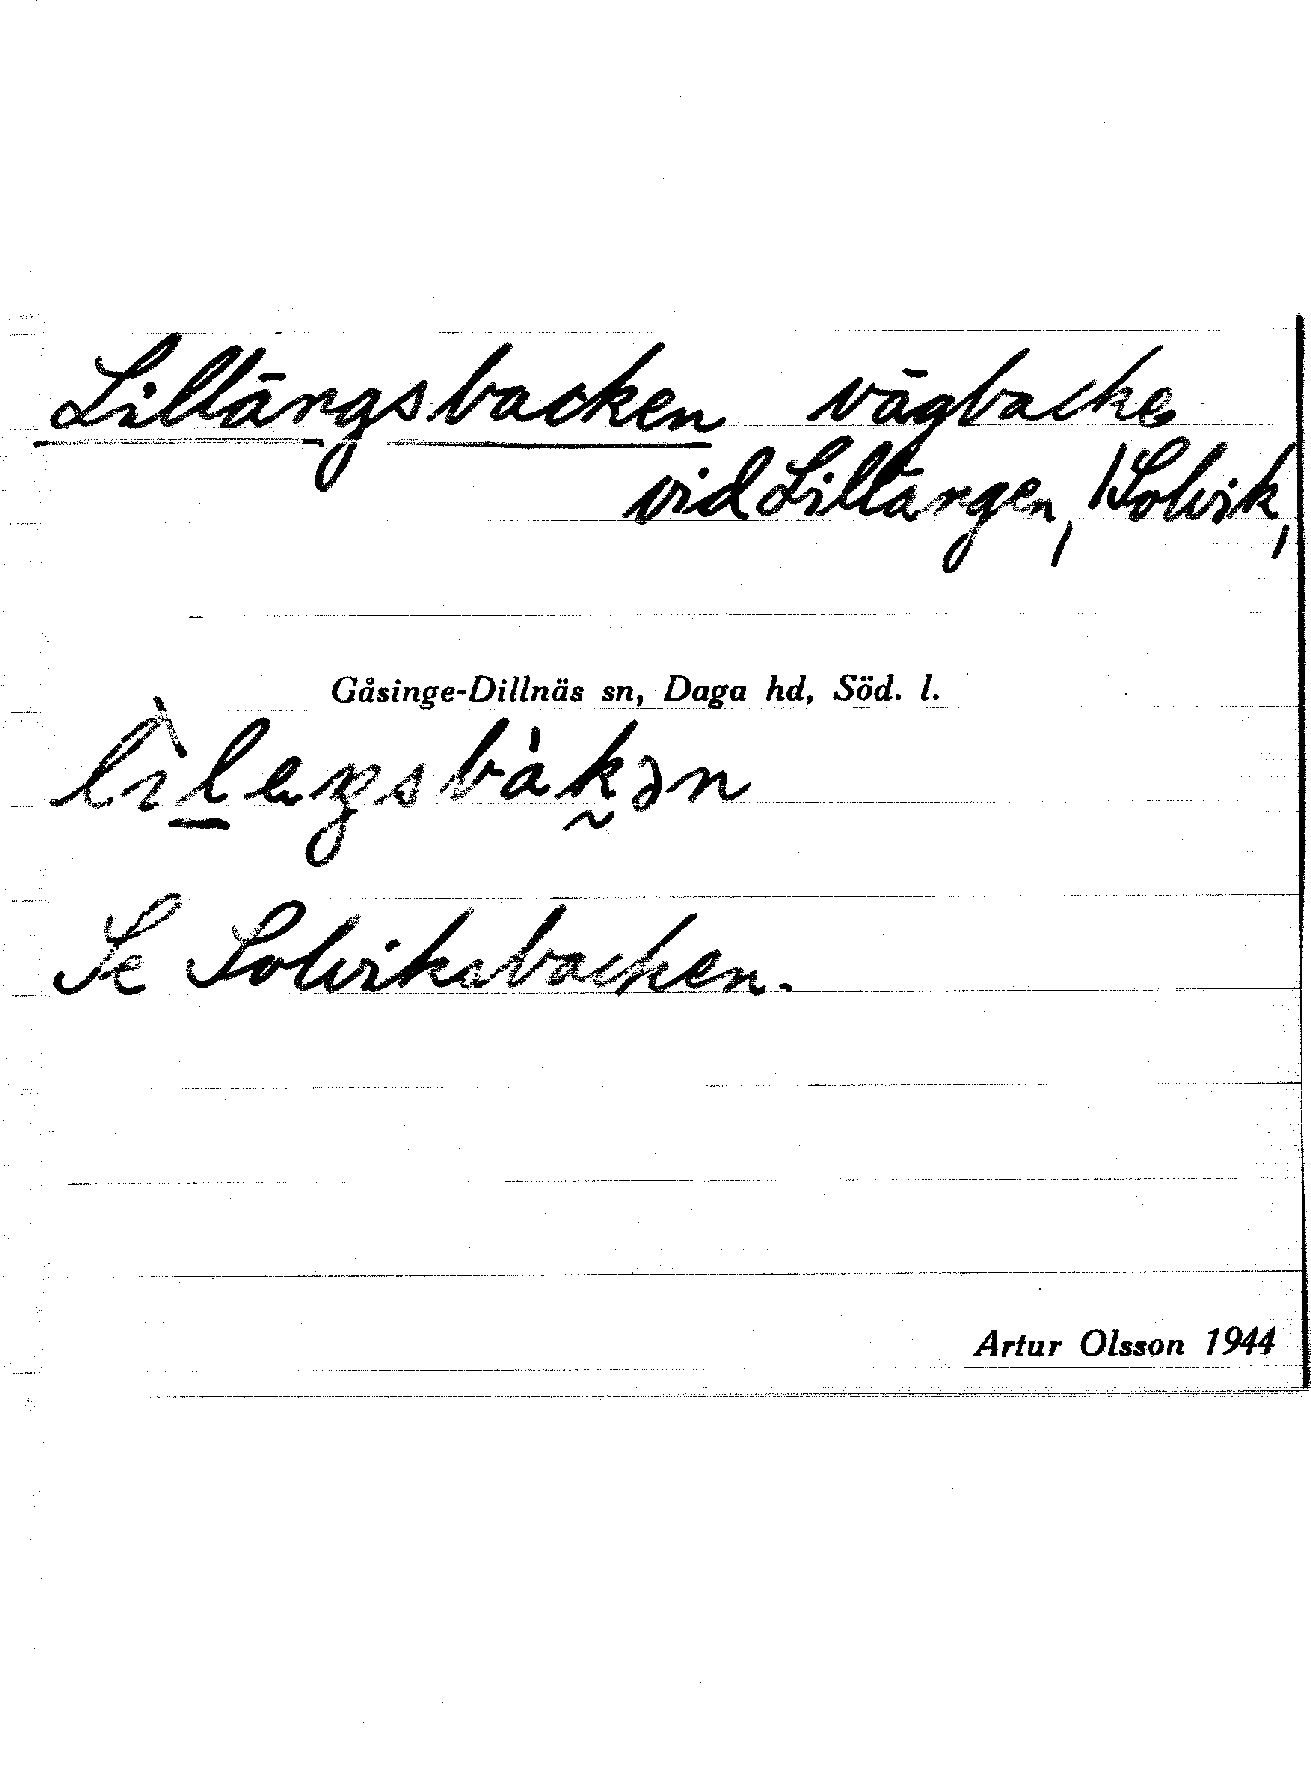 Lillängsbacken vägbacke
vid Lillängen, /Solvik,
Gåsinge-Dillnäs sn, Daga hd, Söd. l.
Se Solviksbacken.
Artur Olsson 1944